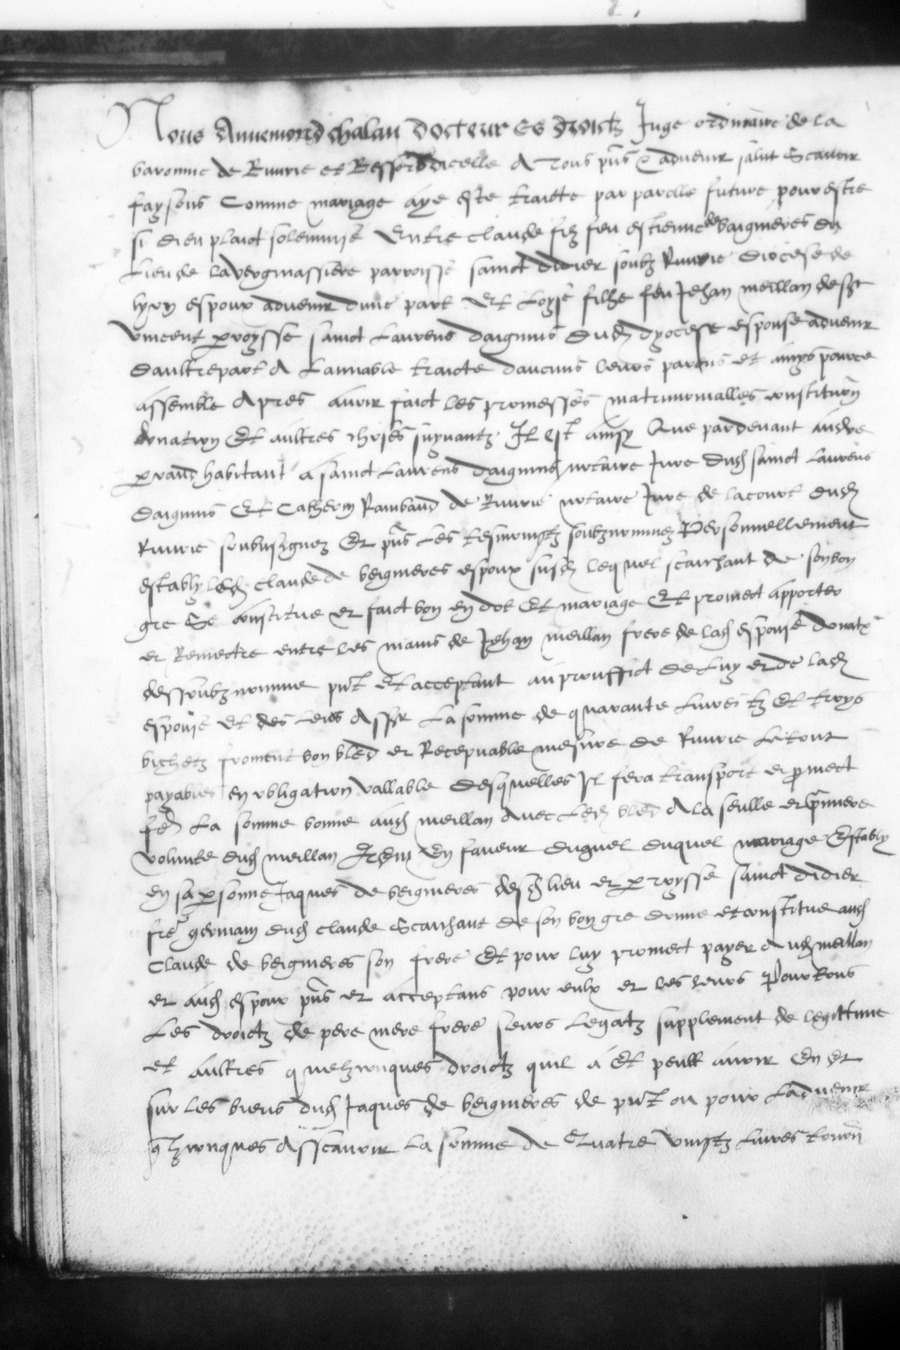 Nous Annemond chalan docteur es droictz Juge ordinaire de la
baronnie de Riverie et Ressort dicelle A Tous pns & advenir salut Scavoir
faysons Comme mariage aye este traicte par parolle future pour estre
si dieu plaict solempnise Entre claude filz feu estienne de baignieres du
Lieu de la vergnassiere parroisse sainct didier soubz Riverie diocese de
lyon espoux advenir dune part Et Loyse filhe feu Jehan meillan de sct
vincent parroysse sainct Laurens daignins dud dyocese espouse advenir
daultre part A Lamiable traicte daucuns leurs parens et amys pour ce
assemble Apres avoir faict les promesses matrimonialles constitution
donation Et aultres choses suyvantz Il est ainsy Que pardevant andre
perraud habitant a sainct Laurens daignins notaire Jure dud sainct Laurens
daignins Et Catherin Rambaud de Riverie notaire Jure de la court dud
Riverie soubzsignez Et pns Les tesmoingtz soubznommez Personnellement
estably led claude de beignieres espoux susd lequel scaichant de son bon
gre Se constitue et faict bon en dot Et mariage Et promect apporter
et Remectre entre les mains de Jehan meillan frere de lad espouse donatr
dessoubz nomme pnt Et acceptant au prouffict de luy et de lad
espouse et des leurs Assr La somme de quarante livres tz Et troys
bichetz froment bon bled et Recepvable mesure de Riverie Le tout
payable en obligation vallable desquelles Il fera transport et promect
La somme bonne aud meillan avec led bled A la seulle et premiere
volunte dud meillan Item En faveur duquel duquel mariage Estably
en sa personne Jaques de beignieres desd lieu et parroysse sainct didier
frere germain dud claude Scaichant de son bon gre donne et constitue aud
Claude de beignieres son frere Et pour luy promect payer aud meillan
et aud espoux pns et acceptans pour eulx et les leurs Pour tous
Les droictz de pere mere frere seurs Legatz supplement de legittime
et aultres quelzconques droictz quil a Et peult avoir En et
sur les biens dud Jaques de beignieres de pnt ou pour Ladvenir
qlzconques Asscavoir La somme de Quatre vingtz livres tourn